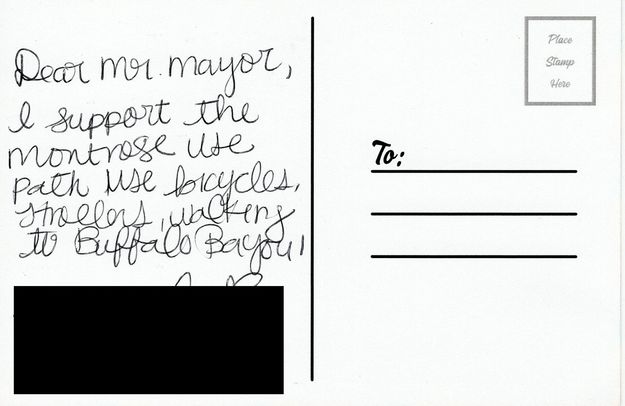 Dear Mr. Mayor,
I support the
Montrose Use
path Use bicycles,
strollers, walking
to Buffalo Bayou!
Place
Stamp
Here
To: